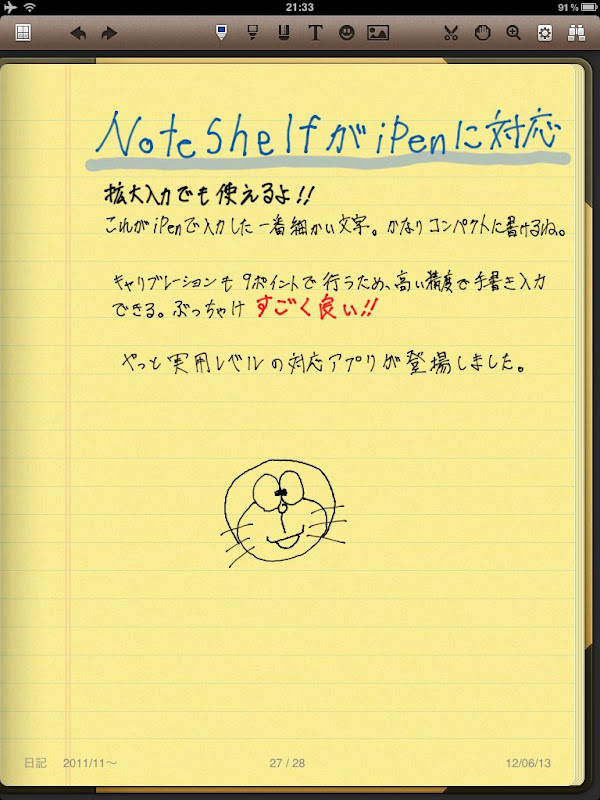 21:33
91%
T
NoteShelfがiPenに対応
拡大入力でも使えるよ!!
これがiPenで入力した一番細かい文字。かなりコンパクトに書けるね。
キャリブレーションも9ポイントで行うため、高い精度で手書き入力
できる。ぶっちゃけ すごく良い!!
やっと実用レベルの対応アプリが登場しました。
日記 2011/11〜 27 / 28 12/06/13